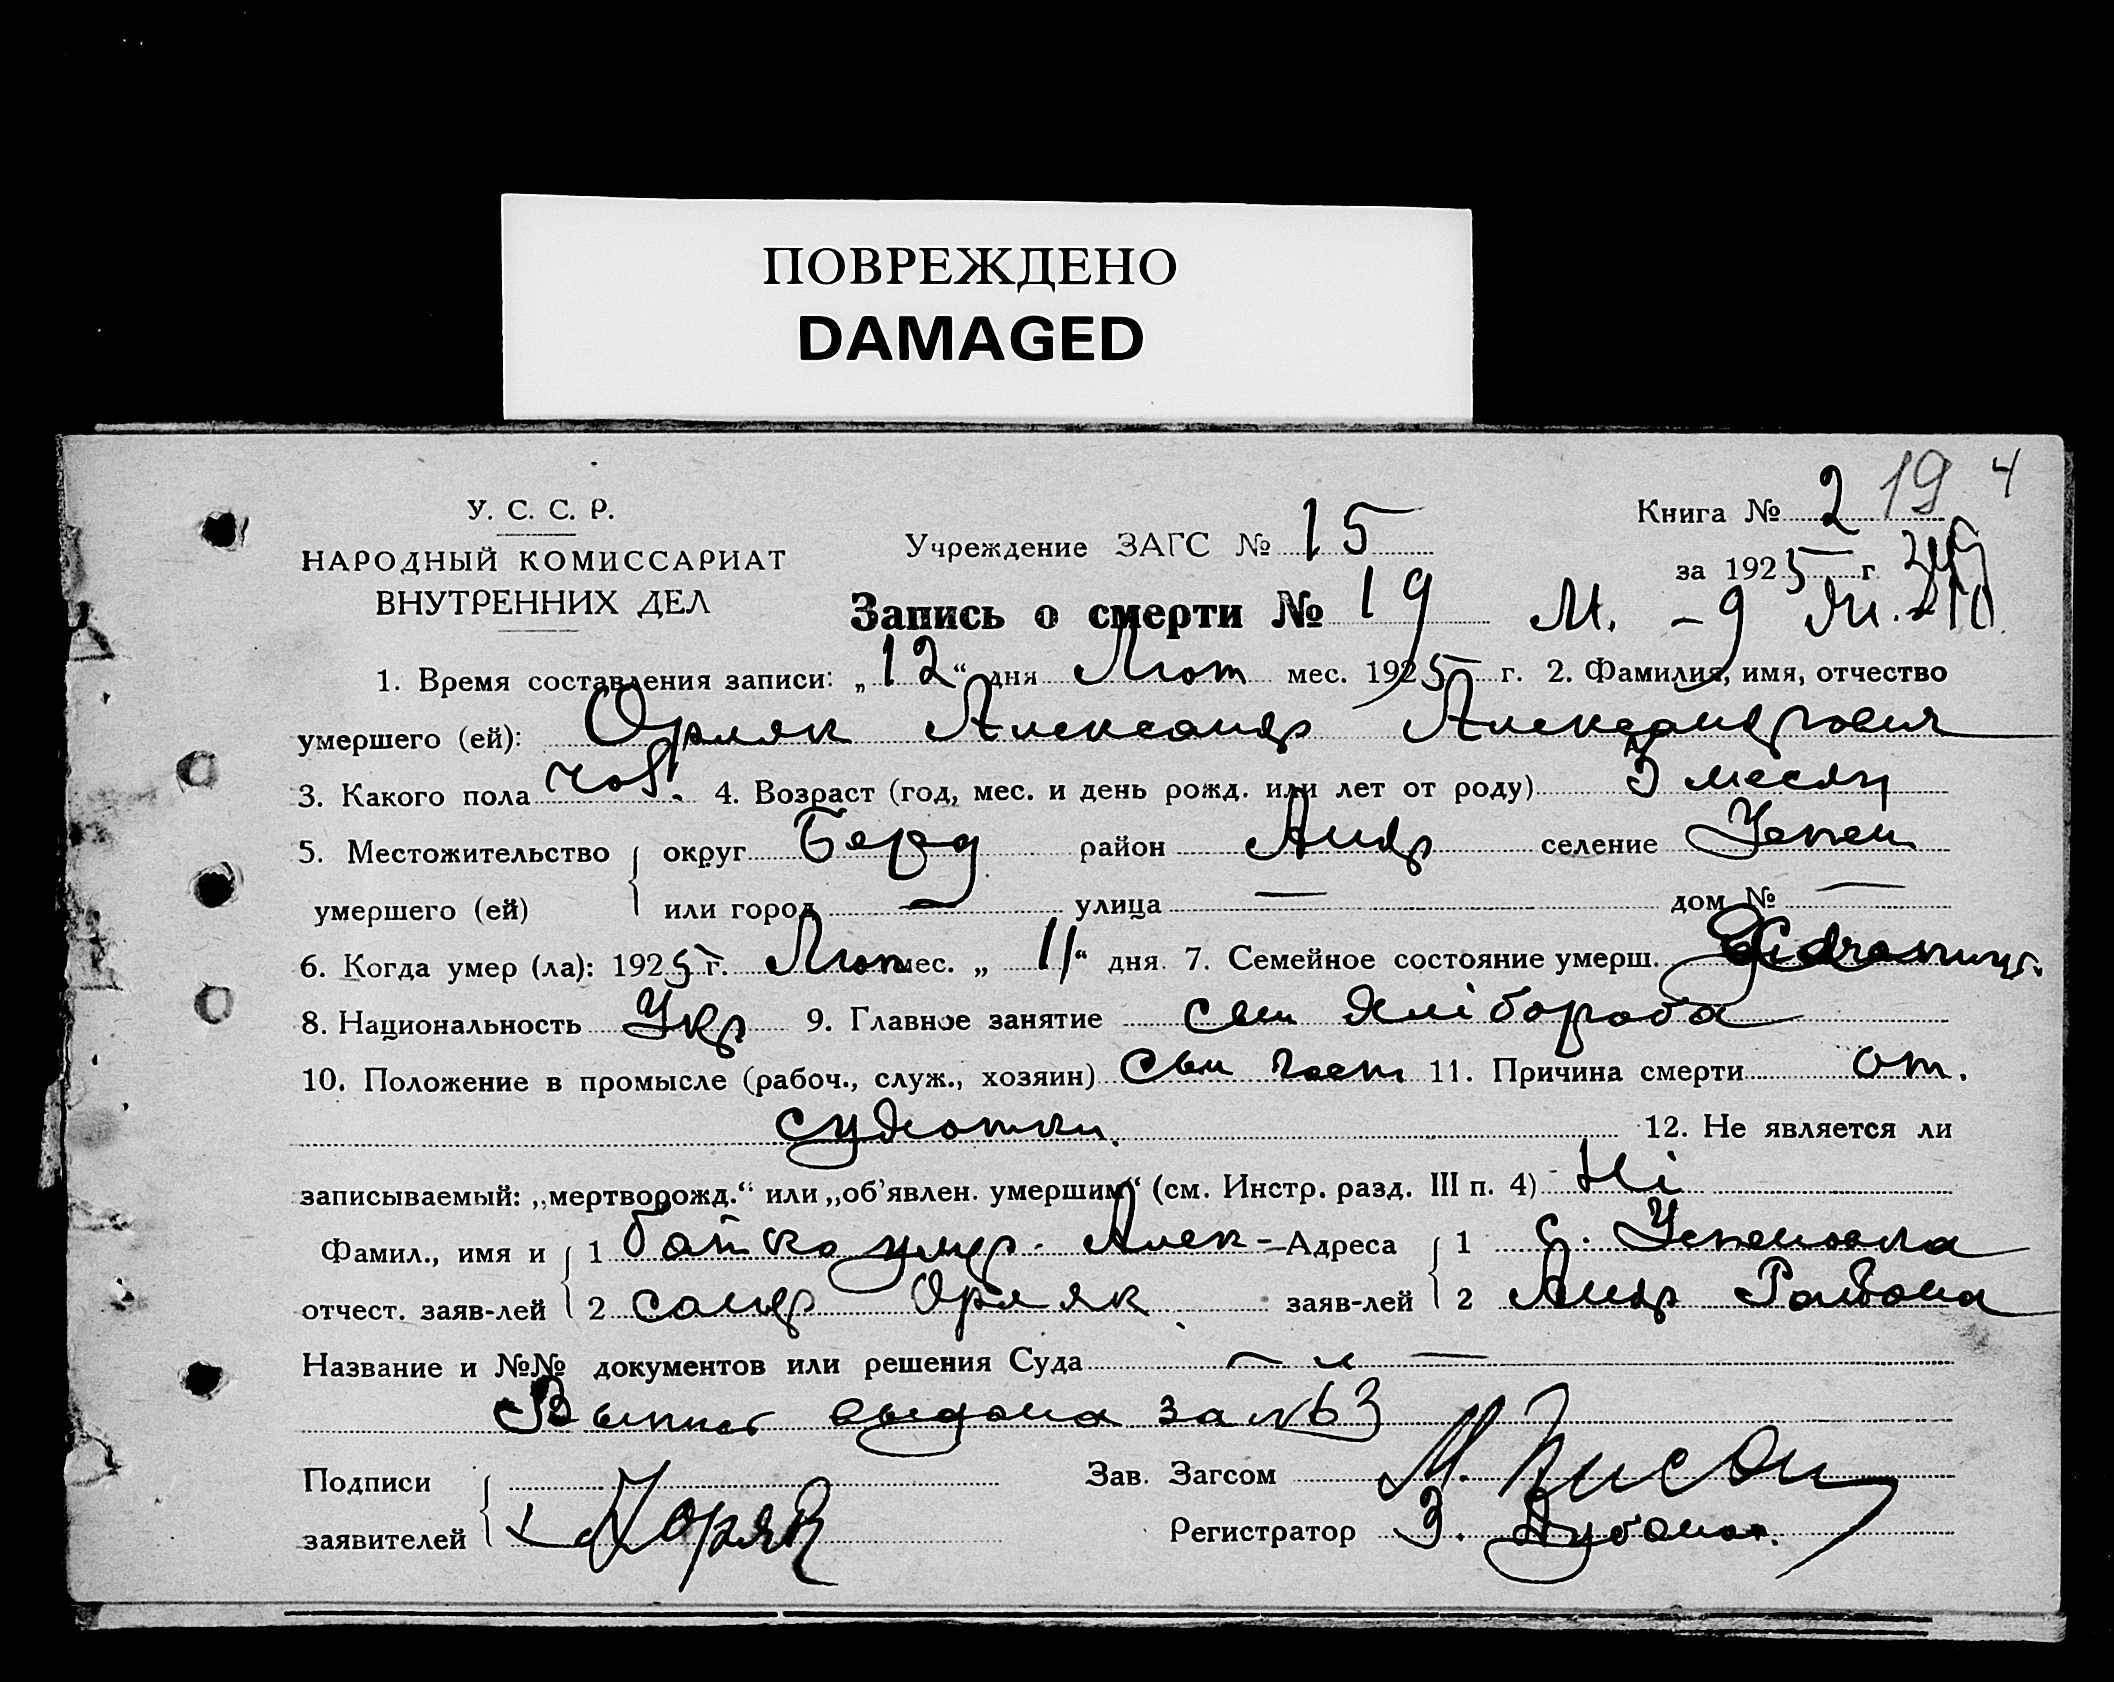 ПОВРЕЖДЕНО
DAMAGED
19 4
У. С. С. Р.
НАРОДНЫЙ КОМИССАРИАТ
ВНУТРЕННИХ ДЕЛ
Учреждение ЗАГС № 15
Книга № 2
за 1925 г.
Запись о смерти № 19 М. - 9
1. Время составления записи: „12“ дня Лют мес. 1925 г. 2. Фамилия, имя, отчество
умершего (ей): Орляк Александр Александрович
3. Какого пола чол. 4. Возраст (год, мес. и день рожд. или лет от роду) 3 месяц
5. Местожительство округ Берд район Андр селение Успен
умершего (ей) или город — улица — дом № —
6. Когда умер (ла): 1925 г. Лют мес. „11“ дня. 7. Семейное состояние умерш.
8. Национальность Укр 9. Главное занятие сын хлібороба
10. Положение в промысле (рабоч., служ., хозяин) сын 11. Причина смерти от.
судхотки.
12. Не является ли
записываемый: „мертворожд.“ или „об'явлен. умершим“ (см. Инстр. разд. III п. 4) Ні
Фамил., имя и 1 батько умер. Алек- Адреса 1 с. Успеновка
отчест. заяв-лей 2 сандр Орляк заяв-лей 2 Андр Района
Название и №№ документов или решения Суда —
выдана за № 63
Подписи
Зав. Загсом М.
заявителей
Регистратор